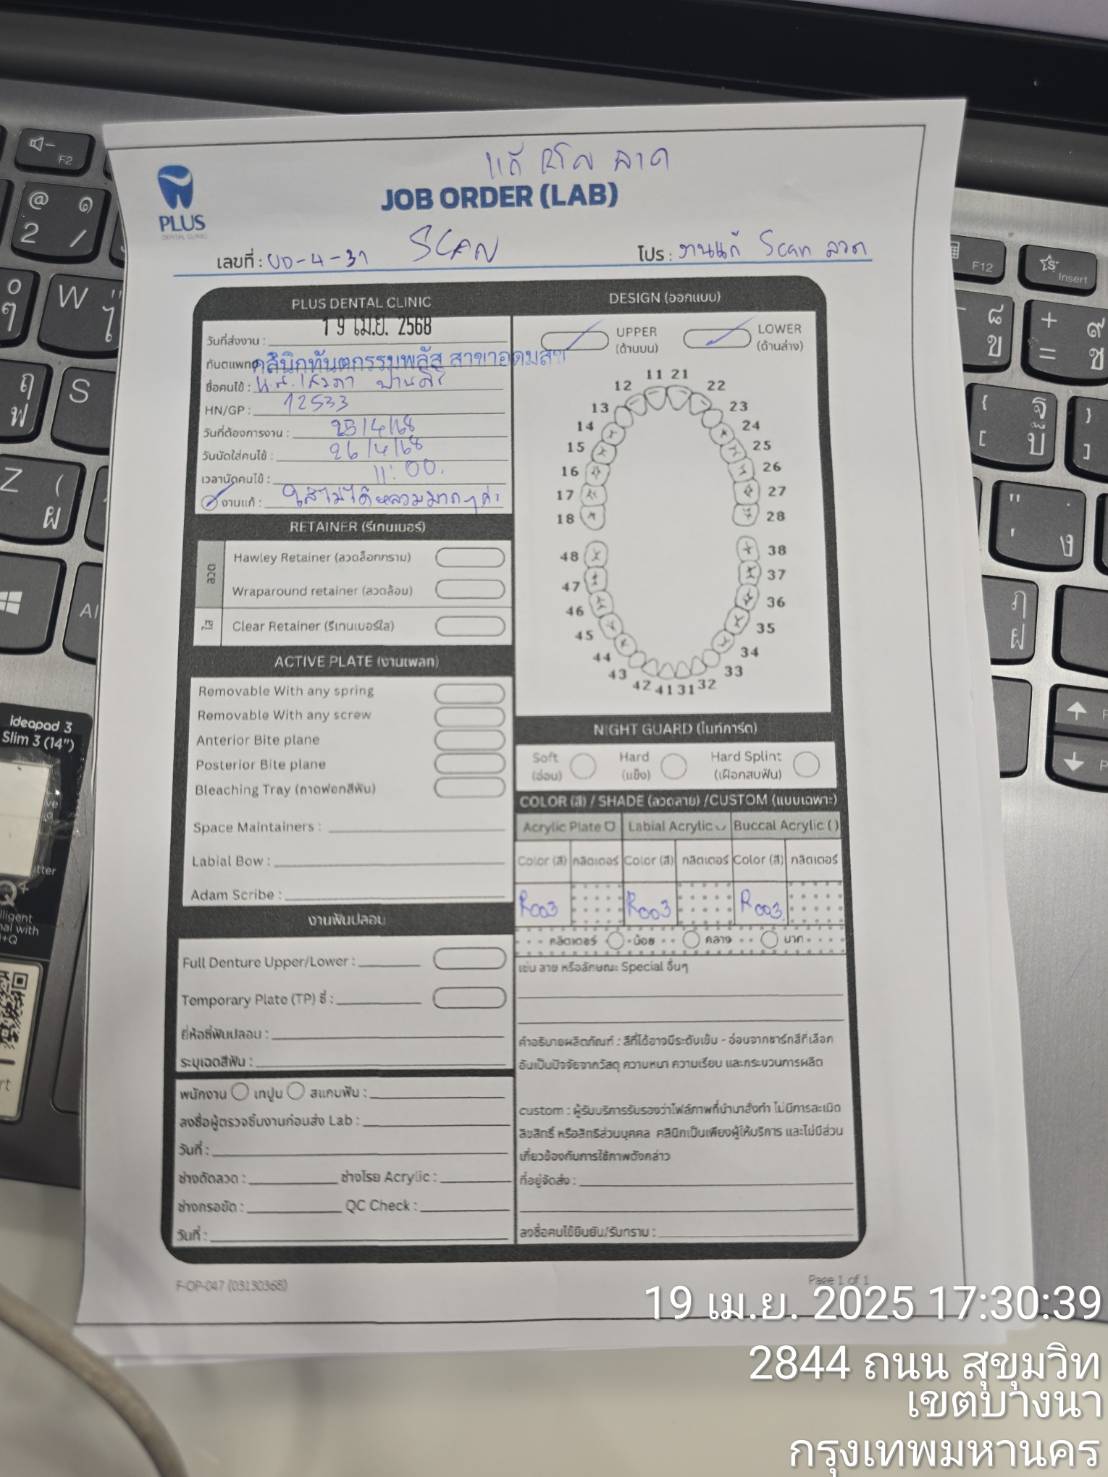 แก้ รีเทน ลวด
PLUS
DENTAL CLINIC
JOB ORDER (LAB)
เลขที่ : UD-4-31 SCAN โปร : งานแก้ Scan ลวด
PLUS DENTAL CLINIC
วันที่ส่งงาน : 19 เม.ย. 2568
ทันตแพทย์ คลินิกทันตกรรมพลัส สาขาอุดมสุข
ชื่อคนไข้ : น.ส.
HN/GP : 12533
วันที่ต้องการงาน : 25/4/68
วันนัดใส่คนไข้ : 26/4/68
เวลานัดคนไข้ : 11:00
งานแก้ : ใส่ไม่ได้หลวมมากๆค่ะ
RETAINER (รีเทนเนอร์)
ลวด
Hawley Retainer (ลวดล็อกกราม)
Wraparound retainer (ลวดล้อม)
ใส
Clear Retainer (รีเทนเนอร์ใส)
ACTIVE PLATE (งานเพลท)
Removable With any spring
Removable With any screw
Anterior Bite plane
Posterior Bite plane
Bleaching Tray (ถาดฟอกสีฟัน)
Space Maintainers :
Labial Bow :
Adam Scribe :
งานฟันปลอม
Full Denture Upper/Lower :
Temporary Plate (TP) ซี่ :
ยี่ห้อซี่ฟันปลอม :
ระบุเฉดสีฟัน :
พนักงาน เทปูน สแกนฟัน :
ลงชื่อผู้ตรวจชิ้นงานก่อนส่ง Lab :
วันที่ :
ช่างดัดลวด : ช่างโรย Acrylic :
ช่างกรอขัด : QC Check :
วันที่ :
DESIGN (ออกแบบ)
UPPER
(ด้านบน)
LOWER
(ด้านล่าง)
11 21
12 22
13 23
14 24
15 25
16 26
17 27
18 28
48 38
47 37
46 36
45 35
44 34
43 33
42 41 31 32
NIGHT GUARD (ไนท์การ์ด)
Soft
(อ่อน)
Hard
(แข็ง)
Hard Splint
(เฝือกสบฟัน)
COLOR (สี) / SHADE (ลวดลาย) /CUSTOM (แบบเฉพาะ)
Acrylic Plate Labial Acrylic Buccal Acrylic ( )
Color (สี) กลิตเตอร์ Color (สี) กลิตเตอร์ Color (สี) กลิตเตอร์
R003 R003 R003
กลิตเตอร์ น้อย กลาง มาก
เช่น ลาย หรือลักษณะ Special อื่นๆ
คำอธิบายผลิตภัณฑ์ : สีที่ได้อาจมีระดับเข้ม - อ่อนจากชาร์ทสีที่เลือก
อันเป็นปัจจัยจากวัสดุ ความหนา ความเรียบ และกระบวนการผลิต
custom : ผู้รับบริการรับรองว่าไฟล์ภาพที่นำมาสั่งทำ ไม่มีการละเมิด
ลิขสิทธิ์ หรือสิทธิส่วนบุคคล คลินิกเป็นเพียงผู้ให้บริการ และไม่มีส่วน
เกี่ยวข้องกับการใช้ภาพดังกล่าว
ที่อยู่จัดส่ง :
ลงชื่อคนไข้ยืนยัน/รับทราบ :
F-OP-047 (03130368)
Page 1 of 1
ideapad 3
Slim 3 (14")
19 เม.ย. 2025 17:30:39
2844 ถนน สุขุมวิท
เขตบางนา
กรุงเทพมหานคร